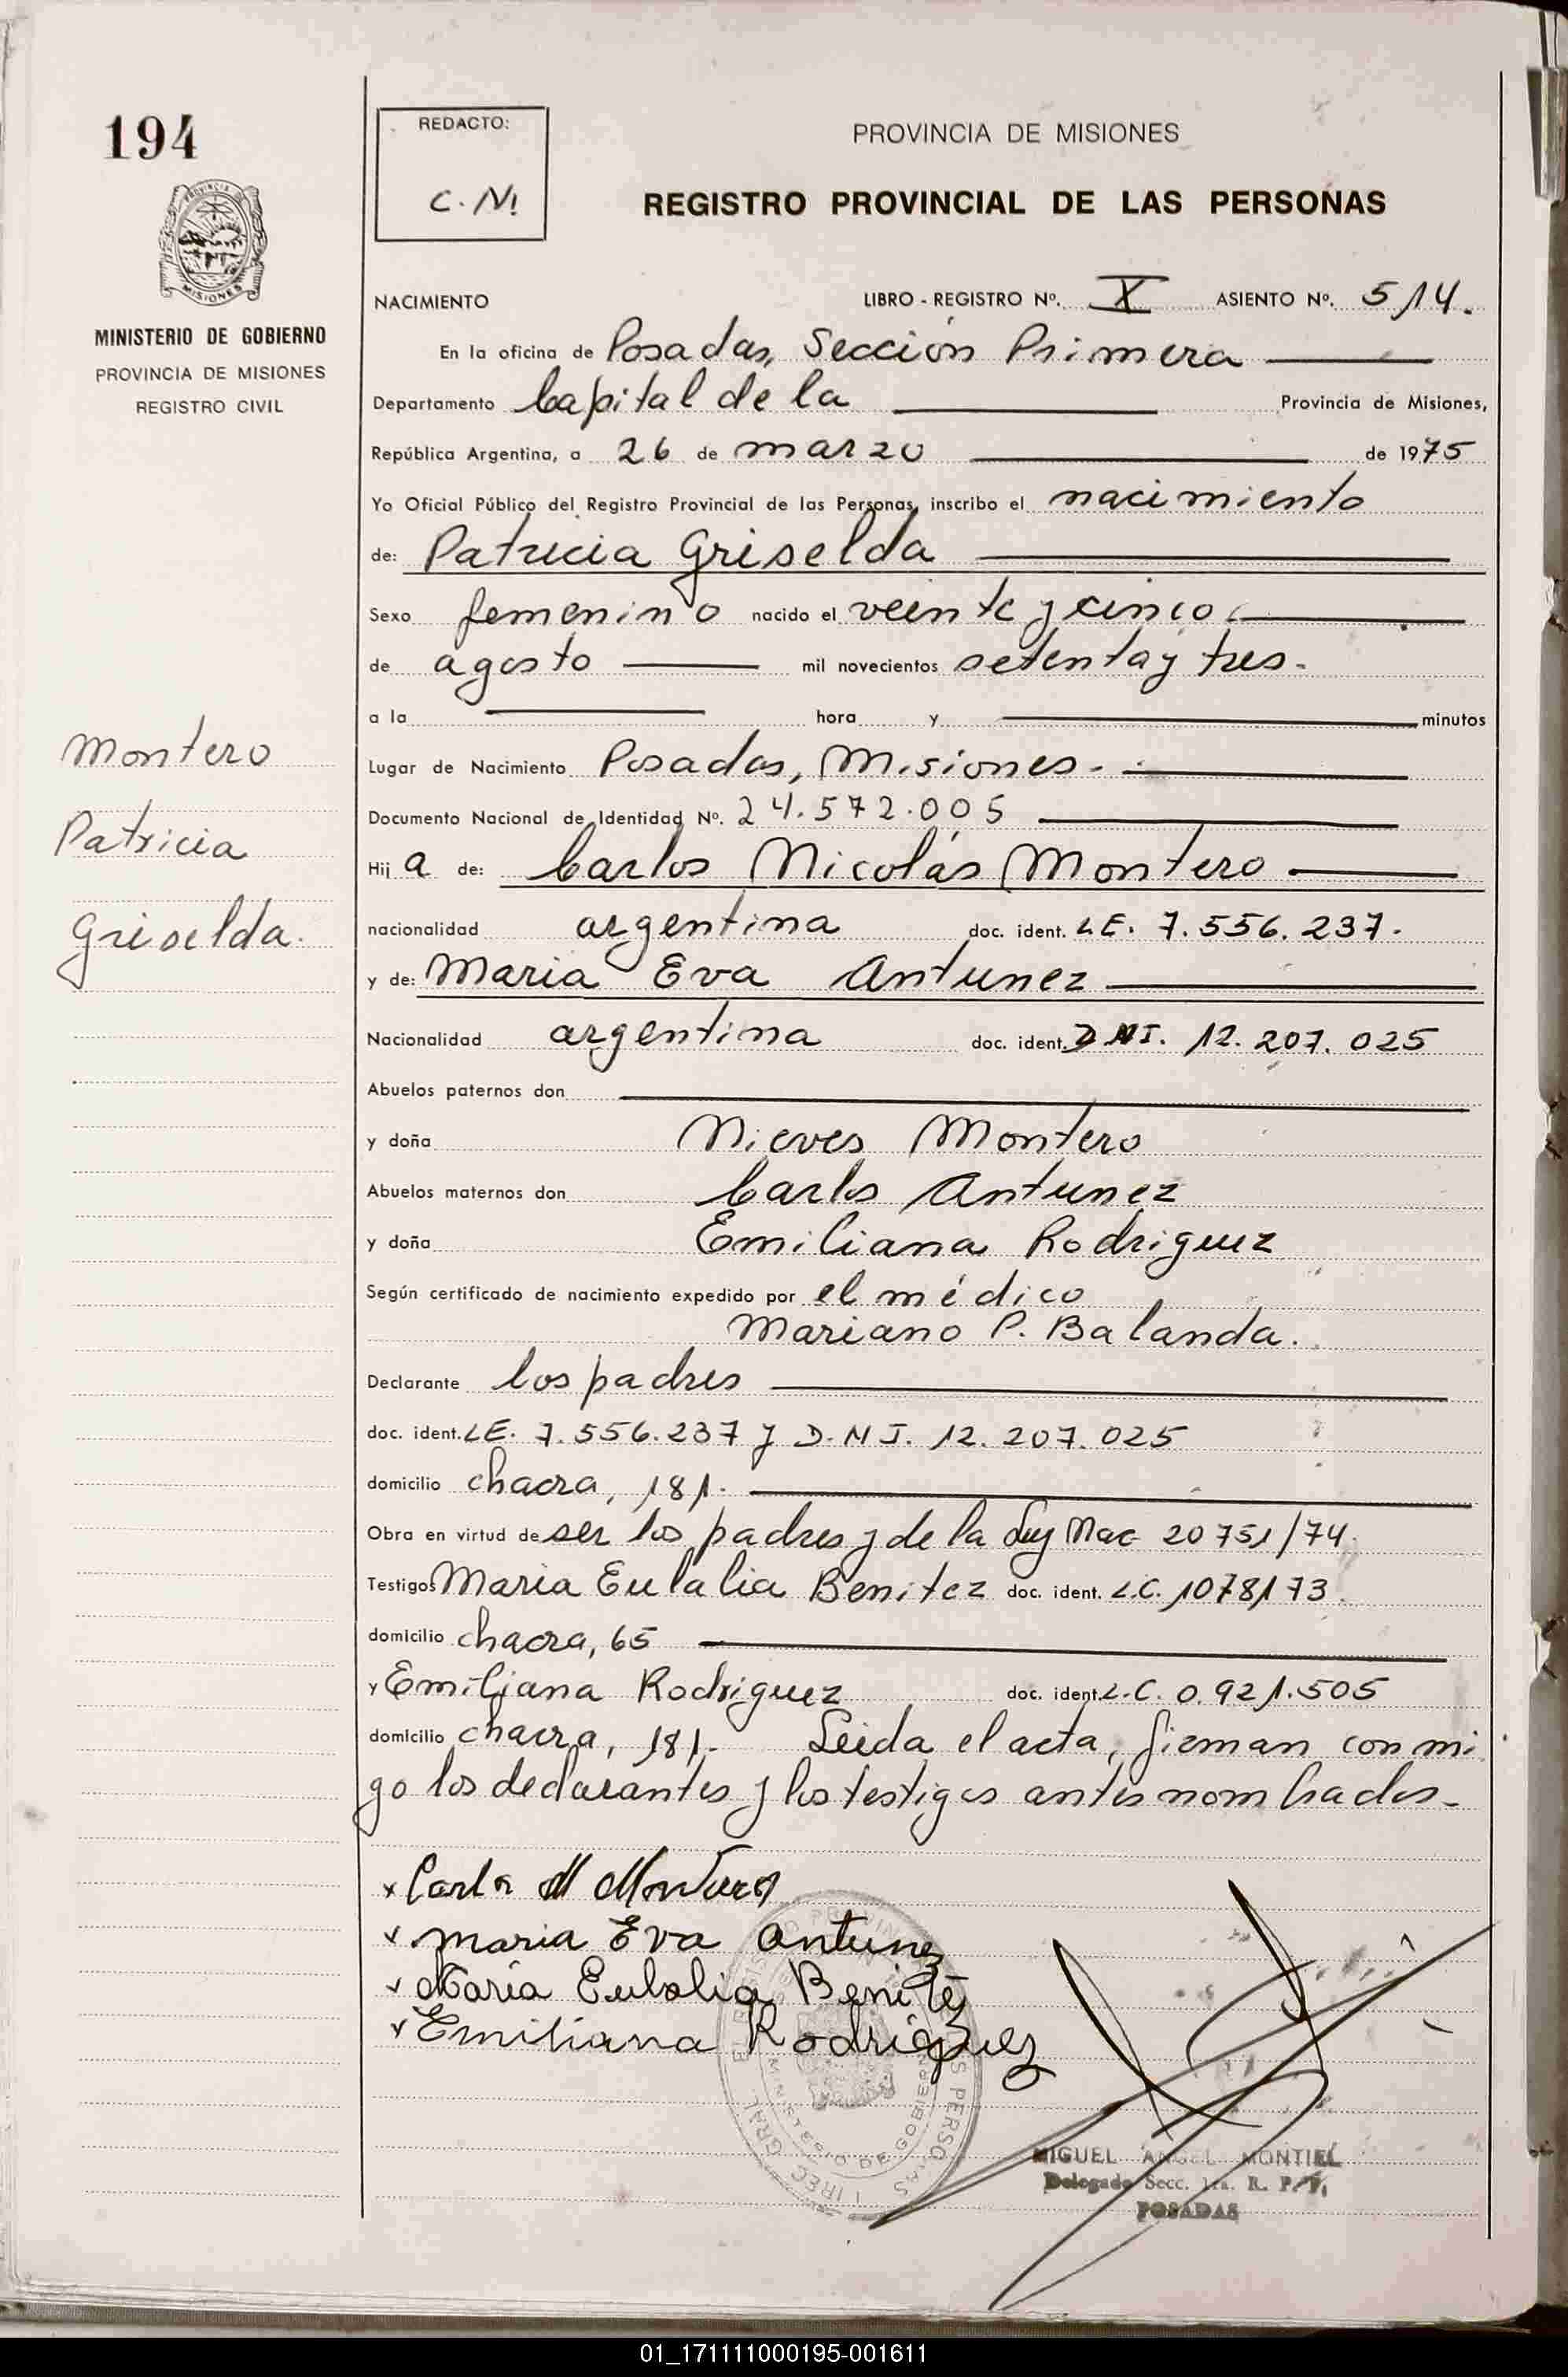 194
PROVINCIA
MISIONES
MINISTERIO DE GOBIERNO
PROVINCIA DE MISIONES
REGISTRO CIVIL
Montero
Patricia
Griselda.
REDACTO:
C.N!
PROVINCIA DE MISIONES
REGISTRO PROVINCIAL DE LAS PERSONAS
NACIMIENTO LIBRO - REGISTRO Nº. X ASIENTO Nº. 514.
En la oficina de Posadas, Sección Primera
Departamento Capital de la Provincia de Misiones,
República Argentina, a 26 de marzo de 1975
Yo Oficial Público del Registro Provincial de las Personas, inscribo el nacimiento
de: Patricia Griselda
Sexo femenino nacido el veinte y cinco
de agosto mil novecientos setenta y tres.
a la hora y minutos
Lugar de Nacimiento Posadas, Misiones.
Documento Nacional de Identidad Nº. 24.572.005
Hij a de: Carlos Nicolás Montero
nacionalidad argentina doc. ident. LE. 7.556.237.
y de: Maria Eva Antunez
Nacionalidad argentina doc. ident. DNI. 12.207.025
Abuelos paternos don
y doña Nieves Montero
Abuelos maternos don Carlos Antunez
y doña Emiliana Rodriguez
Según certificado de nacimiento expedido por el médico
Mariano P. Balanda.
Declarante los padres
doc. ident. LE. 7.556.237 y D.N.I. 12.207.025
domicilio chacra, 181.
Obra en virtud de ser los padres y de la Ley Nac 20751/74.
Testigos Maria Eulalia Benitez doc. ident. L.C. 1078173.
domicilio chacra, 65
y Emiliana Rodriguez doc. ident. L.C. 0.921.505
domicilio chacra, 181. Leida el acta, firman con mi
go los declarantes y los testigos antes nombrados.
x Carlos N Montero
x maria Eva antunez
x Maria Eulalia Benitez
x Emiliana Rodriguez
MINISTERIO DE GOBIERNO
MIGUEL ANGEL MONTIEL
Delegado Secc. 1ra. R. P. P.
POSADAS
01_171111000195-001611